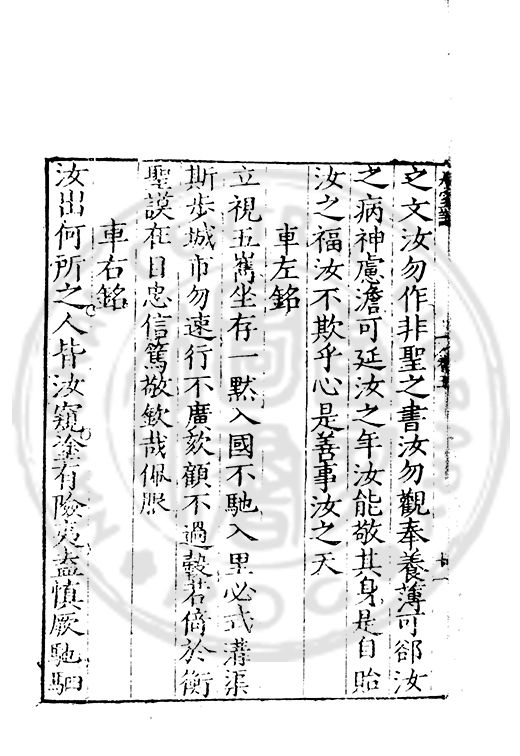 之文汝勿作非聖之書汝勿觀奉養薄可郤汝
之病神慮澹可延汝之年汝能敬其身是自貽
汝之福汝不欺乎心是善事汝之天
車左銘
立視五雋坐存一默入國不馳入里必式溝渠
斯步城市勿速行不廣欬顧不過轂若倚於衡
聖謨在目忠信篤敬欽哉佩服
車右銘
汝出何所之人皆汝窺塗有險夷盍慎厥馳駟